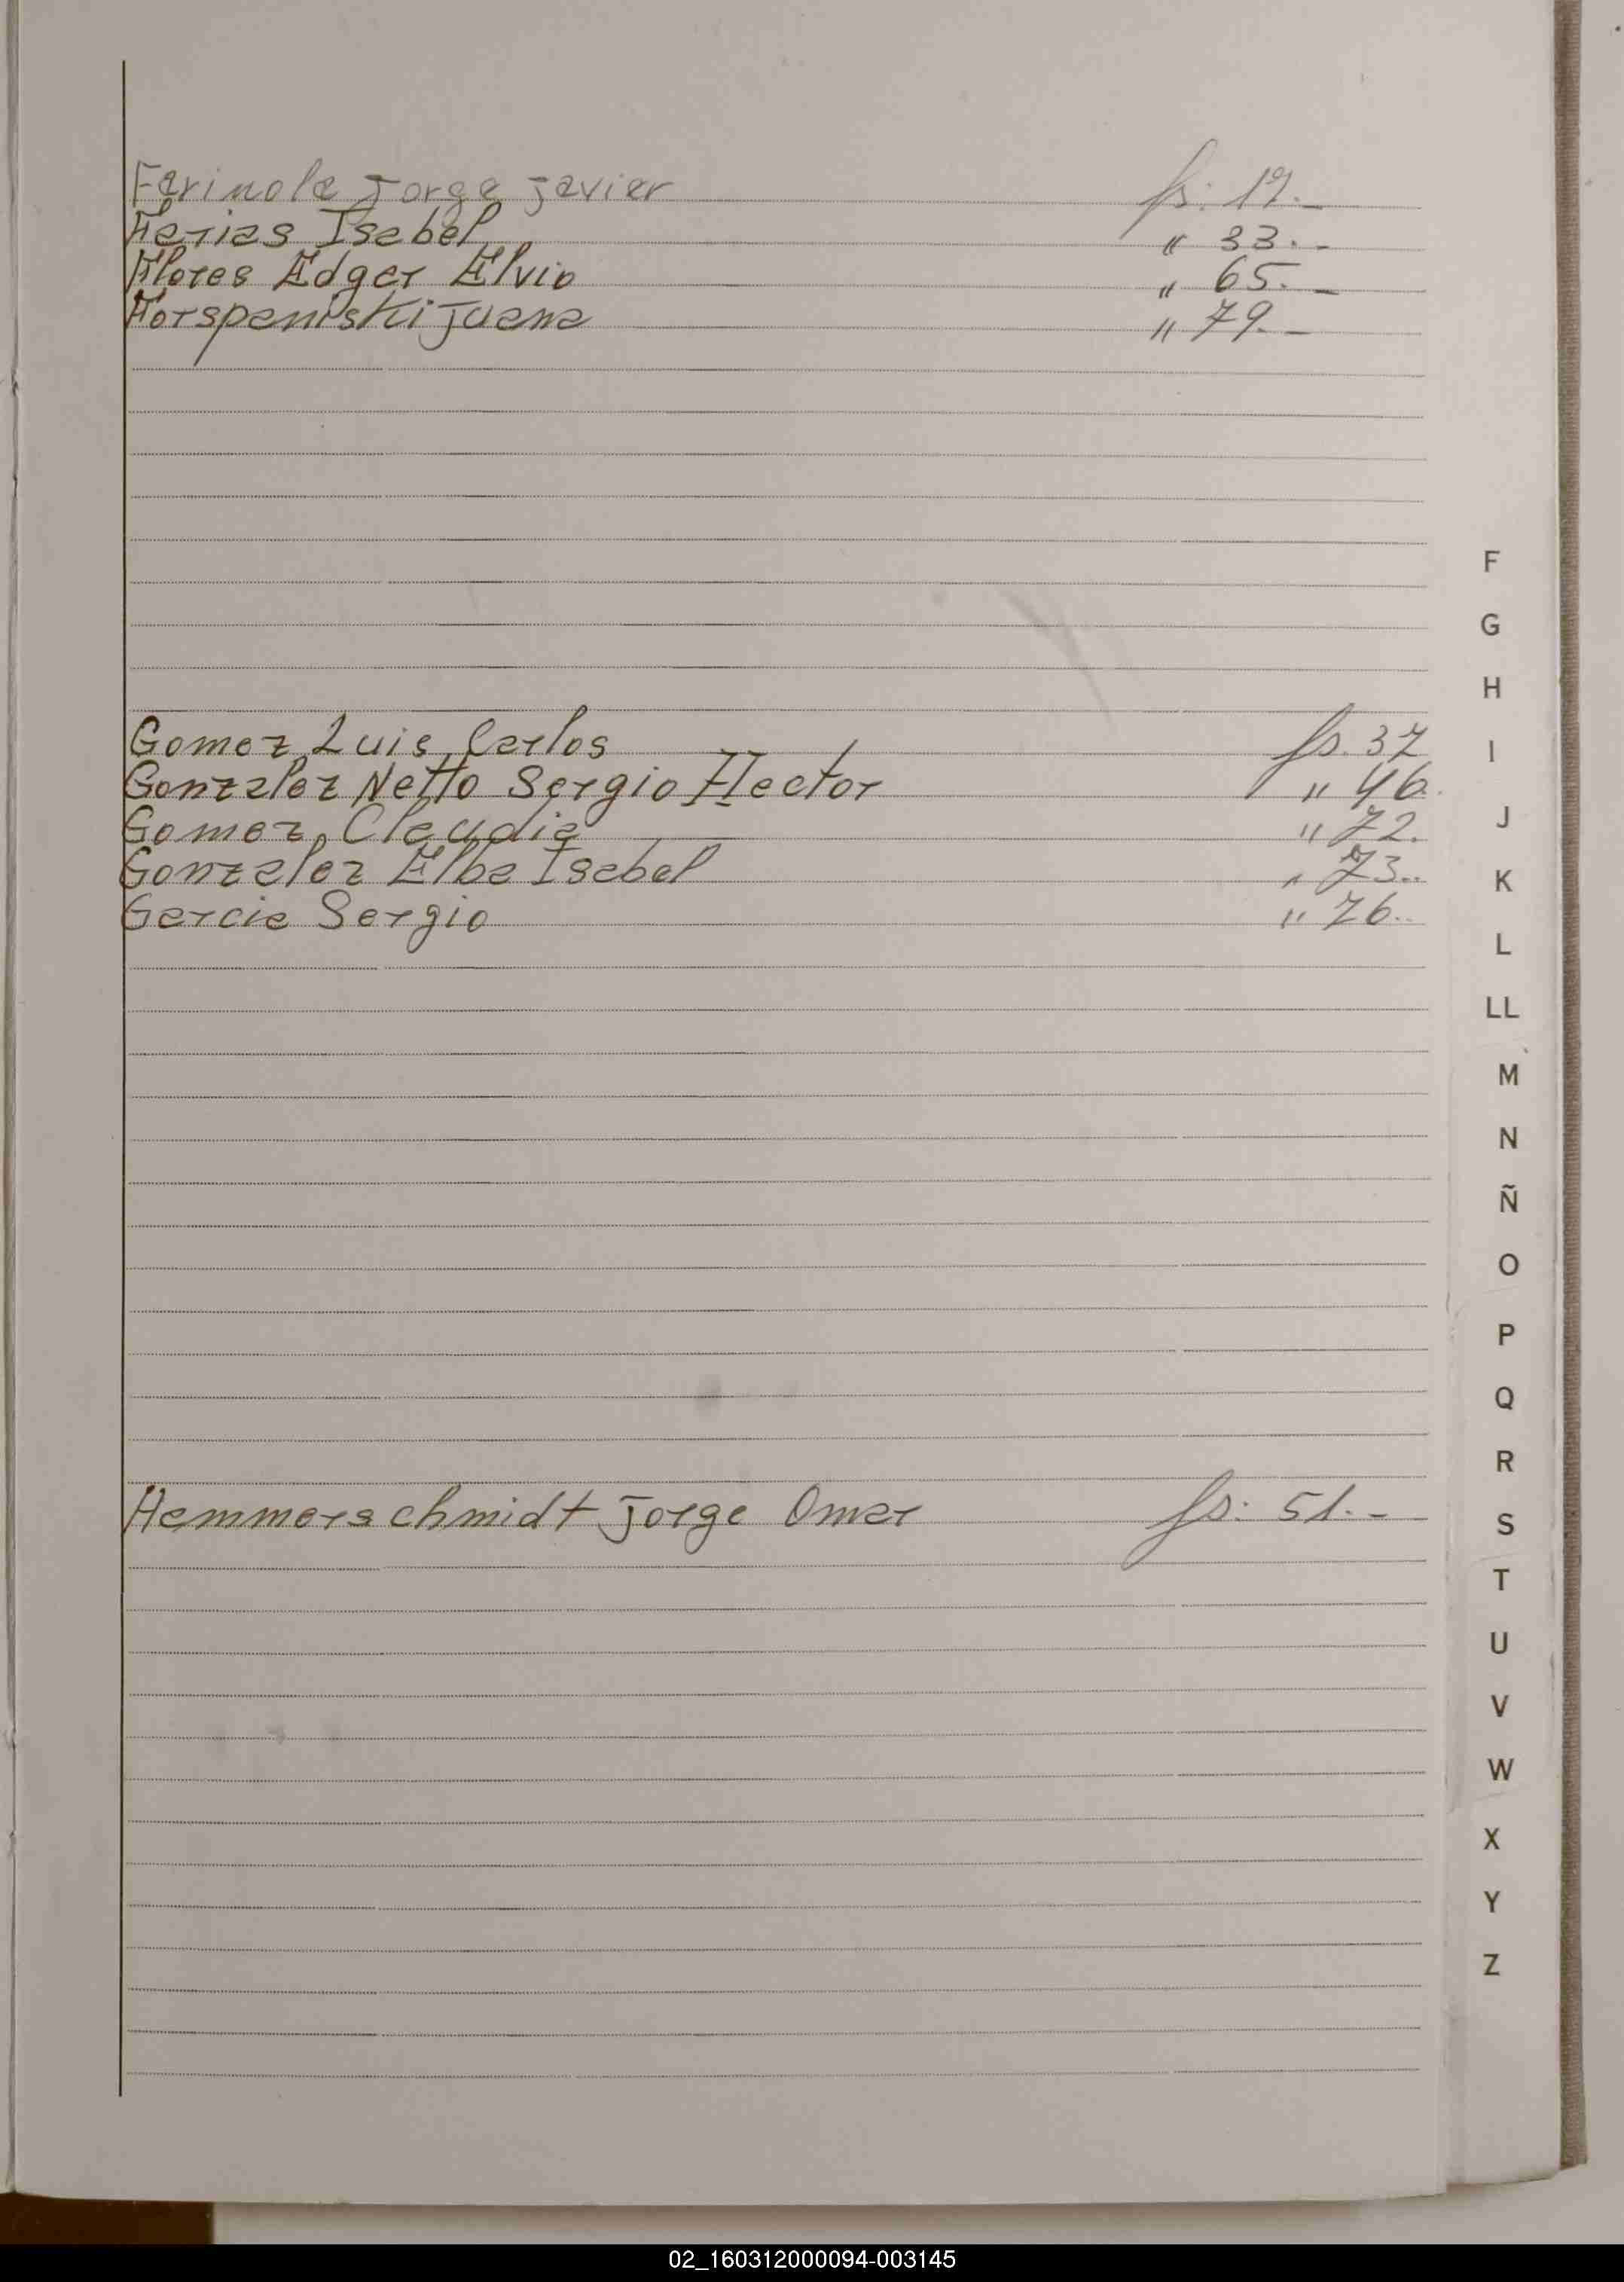 Farinola Jorge Javier fs. 19.-
Farias Isabel " 33.-
Flores Edgar Elvio " 65.-
Forspaniski Juana " 79.-
Gomez Luis Carlos fs. 37
Gonzalez Netto Sergio Hector " 46.
Gomez Claudia " 72.
Gonzalez Elba Isabel " 73..
Garcia Sergio " 76..
Hammerschmidt Jorge Omar fs: 51.-
F
G
H
I
J
K
L
LL
M
N
Ñ
O
P
Q
R
S
T
U
V
W
X
Y
Z
02_160312000094-003145